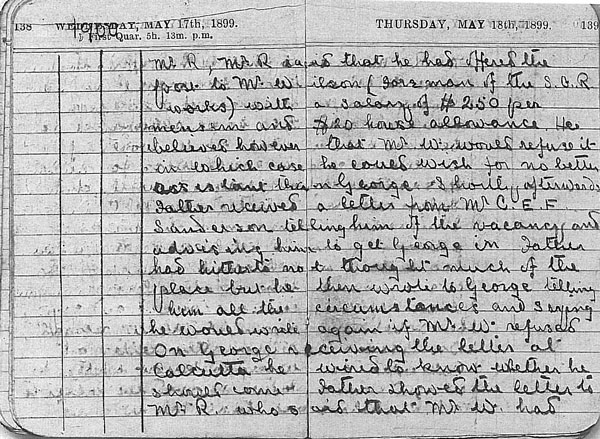 138 WEDNESDAY, MAY 17th, 1899.
1900
☽ First Quar. 5h. 13m. p.m.
THURSDAY, MAY 18th, 1899. 139
Mr. R, Mr. R said that he had offered the
post to Mr. Wilson (foreman of the S.C.R
works) with a salary of $250 per
mensem and $20 house allowance. He
believes however that Mr. W. would refuse it
in which case he could wish for no better
assistant than George. Shortly afterwards
Father received a letter from Mr C. E. F
Sanderson telling him of the vacancy and
advising him to get George in. Father
had hitherto not thought much of the
place but he then wrote to George telling
him all the circumstances and saying
he would write again if Mr. W. refused
On George receiving the letter at
Calcutta he wired to know whether he
should come. Father showed the letter to
Mr. R. who said that Mr. W. had